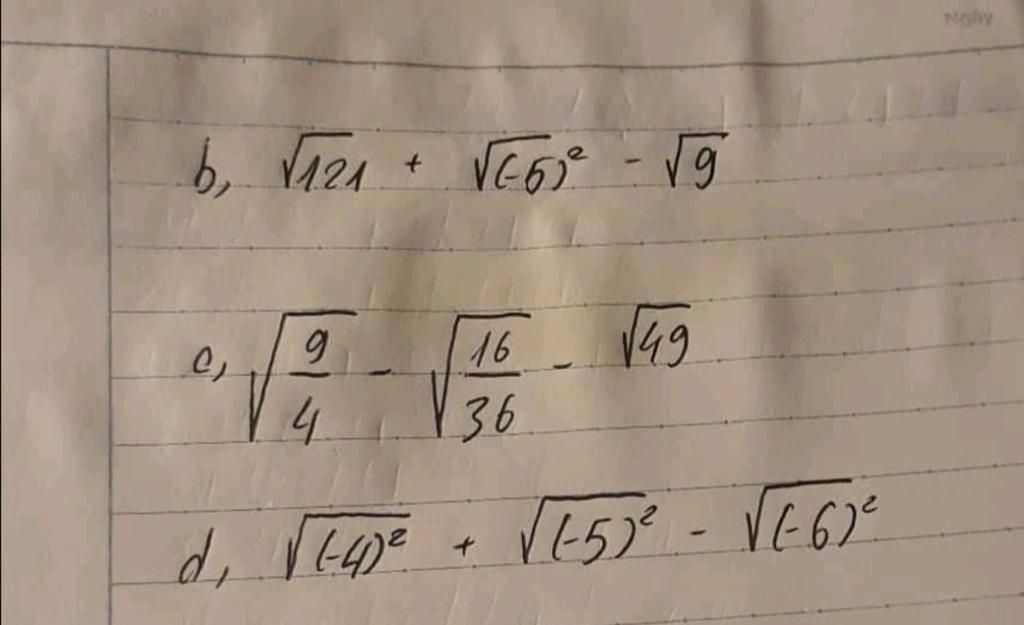 Ngày
b, √121 + √(-5)² - √9
c, √(9/4) - √(16/36) - √49
d, √(-4)² + √(-5)² - √(-6)²